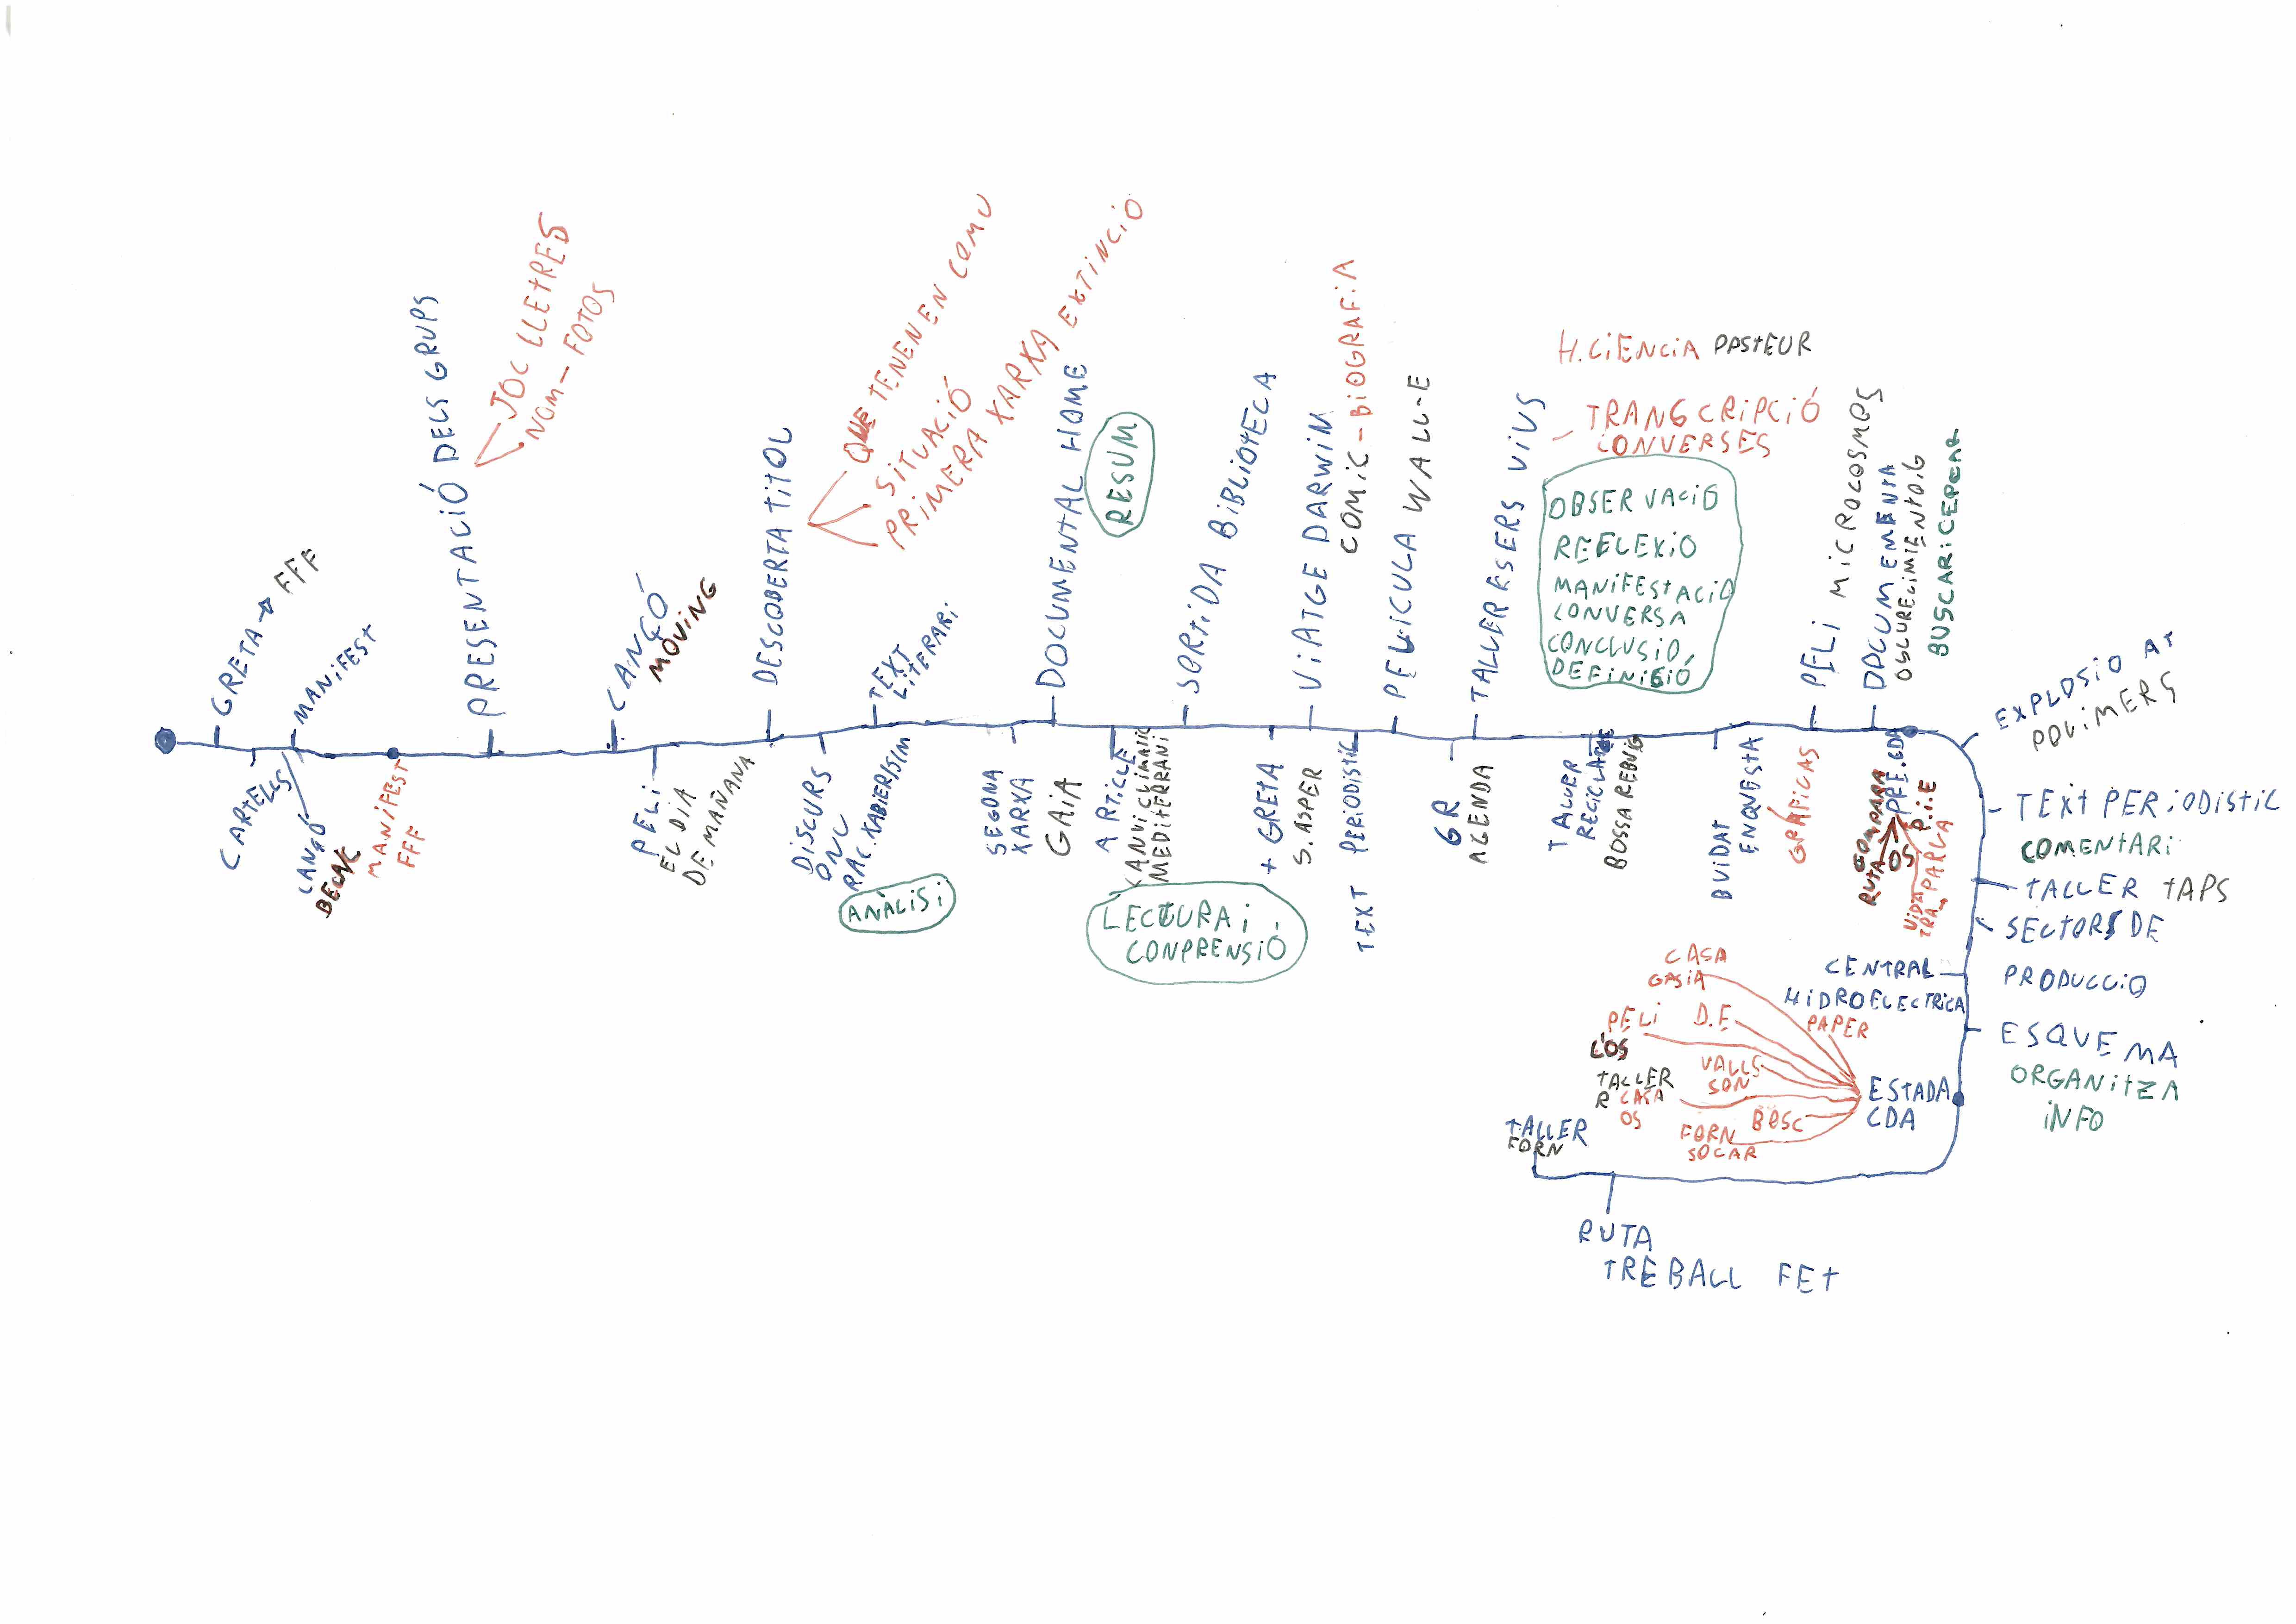 GRETA → FFF
CARTELLS
MANiFEST
CANÇÓ
MANiFEST
FFF
PRESENTACiÓ DELS GRUPS
JOC LLETRES
NOM - FOTOS
CANÇÓ
MOViNG
PELi
EL DiA
DE MAÑANA
DESCOBERTA TiTOL
QUE TENEN EN COMU
SiTUACiÓ
PRiMERA XARXA EXTiNCiÓ
DiSCURS
ONU
ANÀLiSi
TEXT
LiTERARi
SEGONA
XARXA
GAiA
DOCUMENTAL HOME
RESUM
ARTiCLE
CANVi CLiMATiC
MEDiTERRANi
LECTURA i
CONPRENSiÓ
SORTiDA BiBLiOTECA
+ GRETA
S. ASPER
ViATGE DARWiN
COMiC - BiOGRAFiA
TEXT PERiODiSTiC
PEL·LiCULA WALL-E
GR
AGENDA
TALLER ÉSSERS ViUS
H. CiENCiA PASTEUR
TRANSCRiPCiÓ
CONVERSES
OBSERVACiÓ
REFLEXiÓ
MANiFESTACiÓ
CONVERSA
CONCLUSiÓ
DEFiNiCiÓ
TALLER
RECiCLATGE
BOSSA REBUiG
BUiDAT
ENQUESTA
GRÀFiCAS
PELi MiCROCOSMOS
DOCUMENTA
OSCURECiMiENTO G
BUSCAR i CEPEAR
PRE.CDA
P.i.E
COMPARA
RUTA OS
PARLA
EXPLOSiO AT
POLiMERS
TEXT PERiODiSTiC
COMENTARi
TALLER TAPS
SECTORS DE
PRODUCCiO
CENTRAL
HiDROELECTRiCA
ESQUEMA
ORGANiTZA
iNFO
ESTADA
CDA
CASA
GASiA
PAPER
PELi D.E
L'OS
VALLS
SON
TALLER
R CASA
OS
BOSC
FORN
SOCAR
TALLER
FORN
RUTA
TREBALL FET